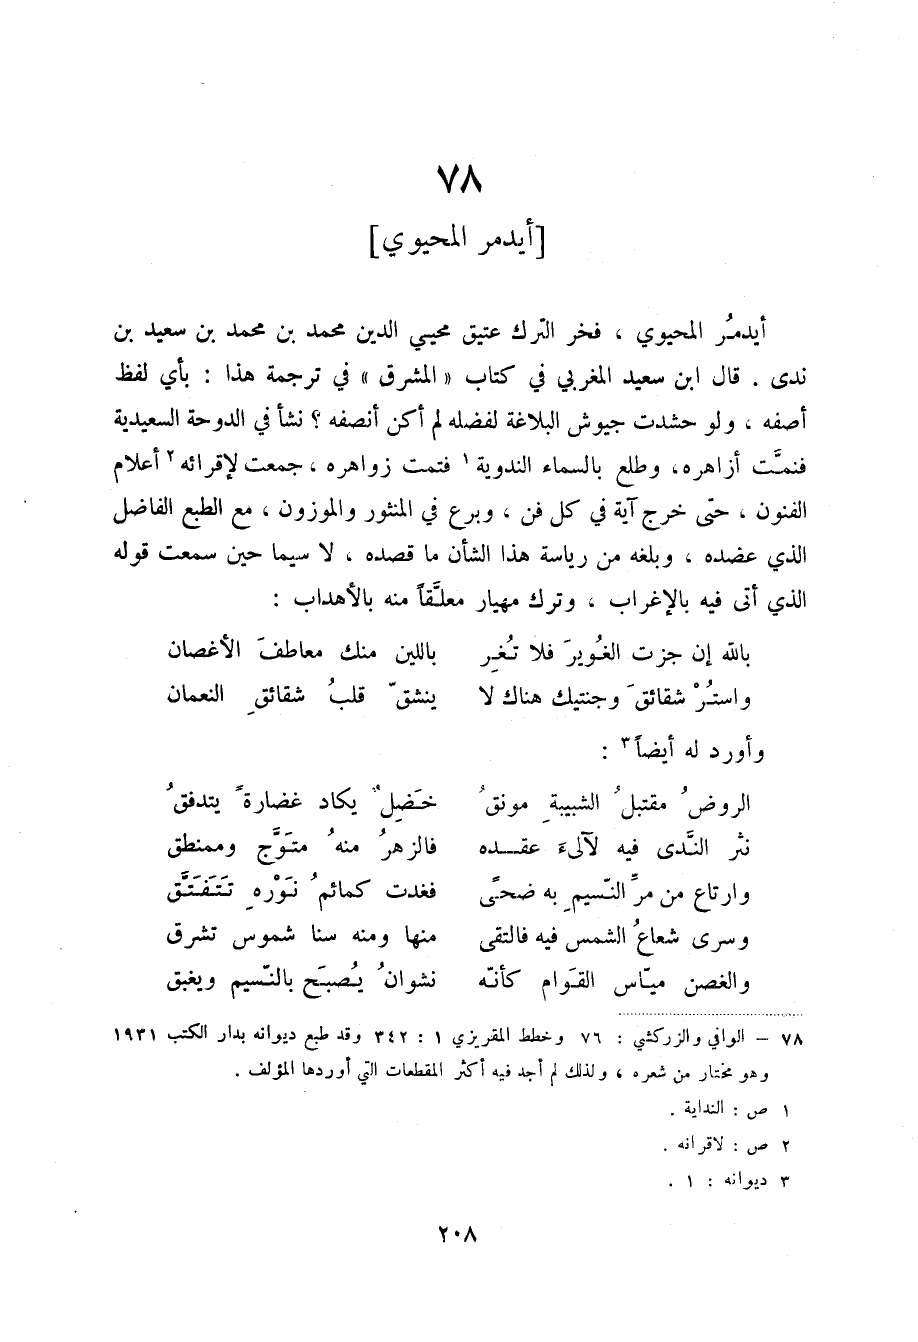 ٧٨
[أيدمر المحيوي]
أيدمُر المحيوي ، فخر الترك عتيق محيي الدين محمد بن محمد بن سعيد بن
ندى . قال ابن سعيد المغربي في كتاب « المشرق » في ترجمة هذا : بأي لفظ
أصفه ، ولو حشدت جيوش البلاغة لفضله لم أكن أنصفه ؟ نشأ في الدوحة السعيدية
فنمَّت أزاهره، وطلع بالسماء الندوية ١ فتمت زواهره ، جمعت لإقرائه ٢ أعلام
الفنون ، حتى خرج آية في كل فن ، وبرع في المنثور والموزون ، مع الطبع الفاضل
الذي عضده ، وبلغه من رياسة هذا الشأن ما قصده ، لا سيما حين سمعت قوله
الذي أتى فيه بالإغراب ، وترك مهيار معلَّقاً منه بالأهداب :
بالله إن جزت الغُويرَ فلا تُغِر باللين منك معاطفَ الأغصان
واستُرْ شقائقَ وجنتيك هناك لا ينشقّ قلبُ شقائقِ النعمان
وأورد له أيضاً ٣ :
الروضُ مقتبلُ الشبيبةِ مونقُ خَضِلٌ يكاد غضارةً يتدفقُ
نثر النَّدى فيه لآلىءَ عقده فالزهرُ منهُ متوَّج وممنطق
وارتاع من مرِّ النّسيمِ به ضحىً فغدت كمائمُ نَوْرهِ تَتَفَتَّق
وسرى شعاعُ الشمس فيه فالتقى منها ومنه سنا شموس تشرق
والغصن ميّاس القَوام كأنّه نشوانُ يُصبَح بالنّسيم ويغبق
٧٨ – الوافي والزركشي : ٧٦ وخطط المقريزي ١ : ٣٤٢ وقد طبع ديوانه بدار الكتب ١٩٣١
وهو مختار من شعره ، ولذلك لم أجد فيه أكثر المقطعات التي أوردها المؤلف .
١ ص : النداية .
٢ ص : لاقرانه .
٣ ديوانه : ١ .
٢٠٨